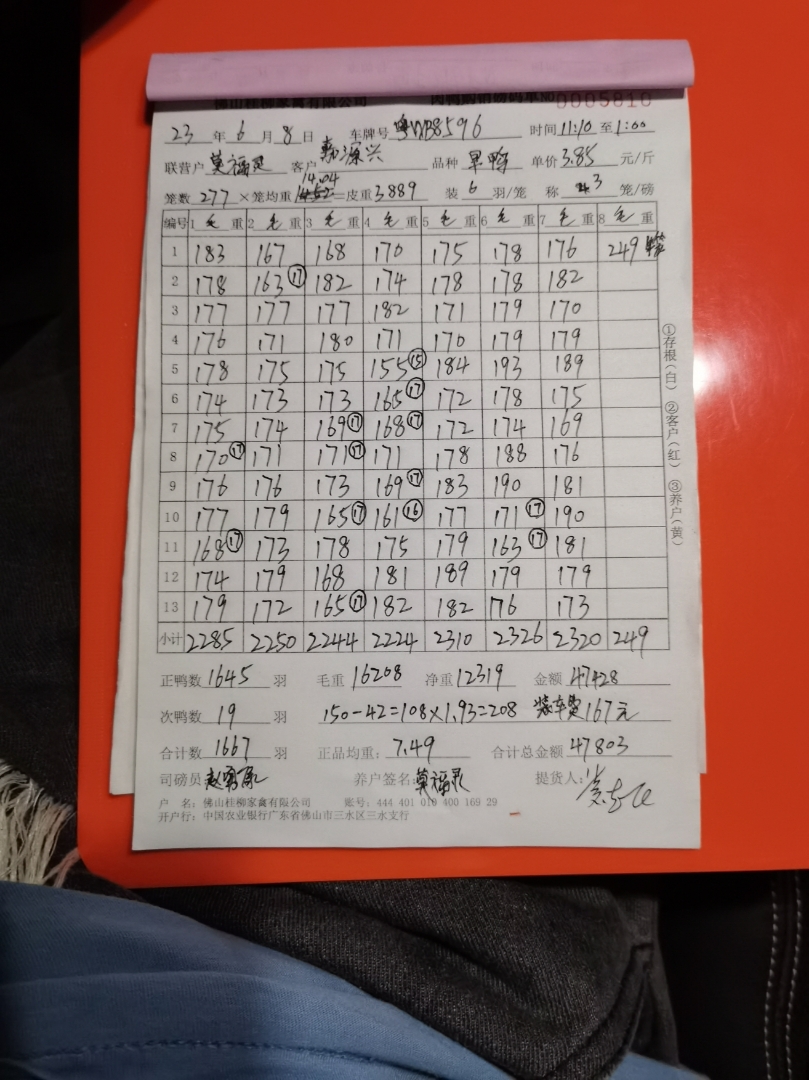 佛山桂柳家禽有限公司 0005810
23 年 6 月 8 日 车牌号 8596 时间 11:10 至 1:00
联营户 莫福灵 客户 源兴 品种 单价 3.85 元/斤
14.04
笼数 277 ×笼均重 =皮重 3889 装 6 羽/笼 称 3 笼/磅
编号 1 毛 重 2 毛 重 3 毛 重 4 毛 重 5 毛 重 6 毛 重 7 毛 重 8 毛 重
1 183 167 168 170 175 178 176 249
2 178 163⑰ 182 174 178 178 182
3 177 177 177 182 171 179 170
4 176 171 180 171 170 179 179
5 178 175 175 155⑮ 184 193 189
6 174 173 173 165⑰ 172 178 175
7 175 174 169⑰ 168⑰ 172 174 169
8 170⑰ 171 171⑰ 171 178 188 176
9 176 176 173 169⑰ 183 190 181
10 177 179 165⑰ 161⑯ 177 171⑰ 190
11 168⑰ 173 178 175 179 163⑰ 181
12 174 179 168 181 189 179 179
13 179 172 165⑰ 182 182 176 173
小计 2285 2250 2244 2224 2310 2326 2320 249
正鸭数 1645 羽 毛重 16208 净重 12319 金额 47428
次鸭数 19 羽 150-42=108×1.93=208 装车费 167元
合计数 1667 羽 正品均重: 7.49 合计总金额 47803
司磅员 养户签名: 莫福灵 提货人:
户 名: 佛山桂柳家禽有限公司 账号: 444 401 010 400 169 29
开户行: 中国农业银行广东省佛山市三水区三水支行
①存根(白) ②客户(红) ③养户(黄)